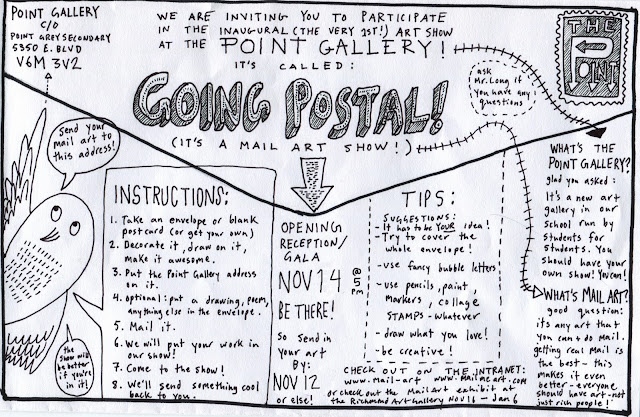 POINT GALLERY
C/O
POINT GREY SECONDARY
5350 E. BLVD
V6M 3V2
WE ARE INVITING YOU TO PARTICIPATE
IN THE INAUGURAL (THE VERY 1ST!) ART SHOW
AT THE POINT GALLERY!
IT'S CALLED:
GOING POSTAL!
(IT'S A MAIL ART SHOW!)
ask
Mr. Long if
you have any
questions
THE
POINT
Send your
mail art to
this address!
the
show will be
better if
you're
in it!
INSTRUCTIONS:
1. Take an envelope or blank
postcard (or get your own)
2. Decorate it, draw on it,
make it awesome.
3. Put the Point Gallery address
on it.
4. optional: put a drawing, poem,
anything else in the envelope.
5. Mail it.
6. We will put your work in
our show!
7. Come to the show!
8. We'll send something cool
back to you.
OPENING
RECEPTION/
GALA
NOV 14 @ 5 pm
BE THERE!
So send in
your art
BY:
NOV 12
or else!
TIPS:
SUGGESTIONS:
- It has to be YOUR idea!
- Try to cover the
whole envelope!
- use fancy bubble letters!
- use pencils, paint,
markers, collage
STAMPS - whatever
- draw what you love!
- be creative!
CHECK OUT ON THE INTRANET:
www.mail-art www.Mailmeart.com
or check out the Mail Art exhibit at
the Richmond Art Gallery NOV 16 - Jan 6
WHAT'S THE
POINT GALLERY?
glad you asked:
It's a new art
gallery in our
school run by
students for
students. You
should have your
own show! You can!
WHAT'S MAIL ART?
good question:
its any art that
you can do Mail.
getting real Mail is
the best - this
makes it even
better - everyone
should have art - not
just rich people!